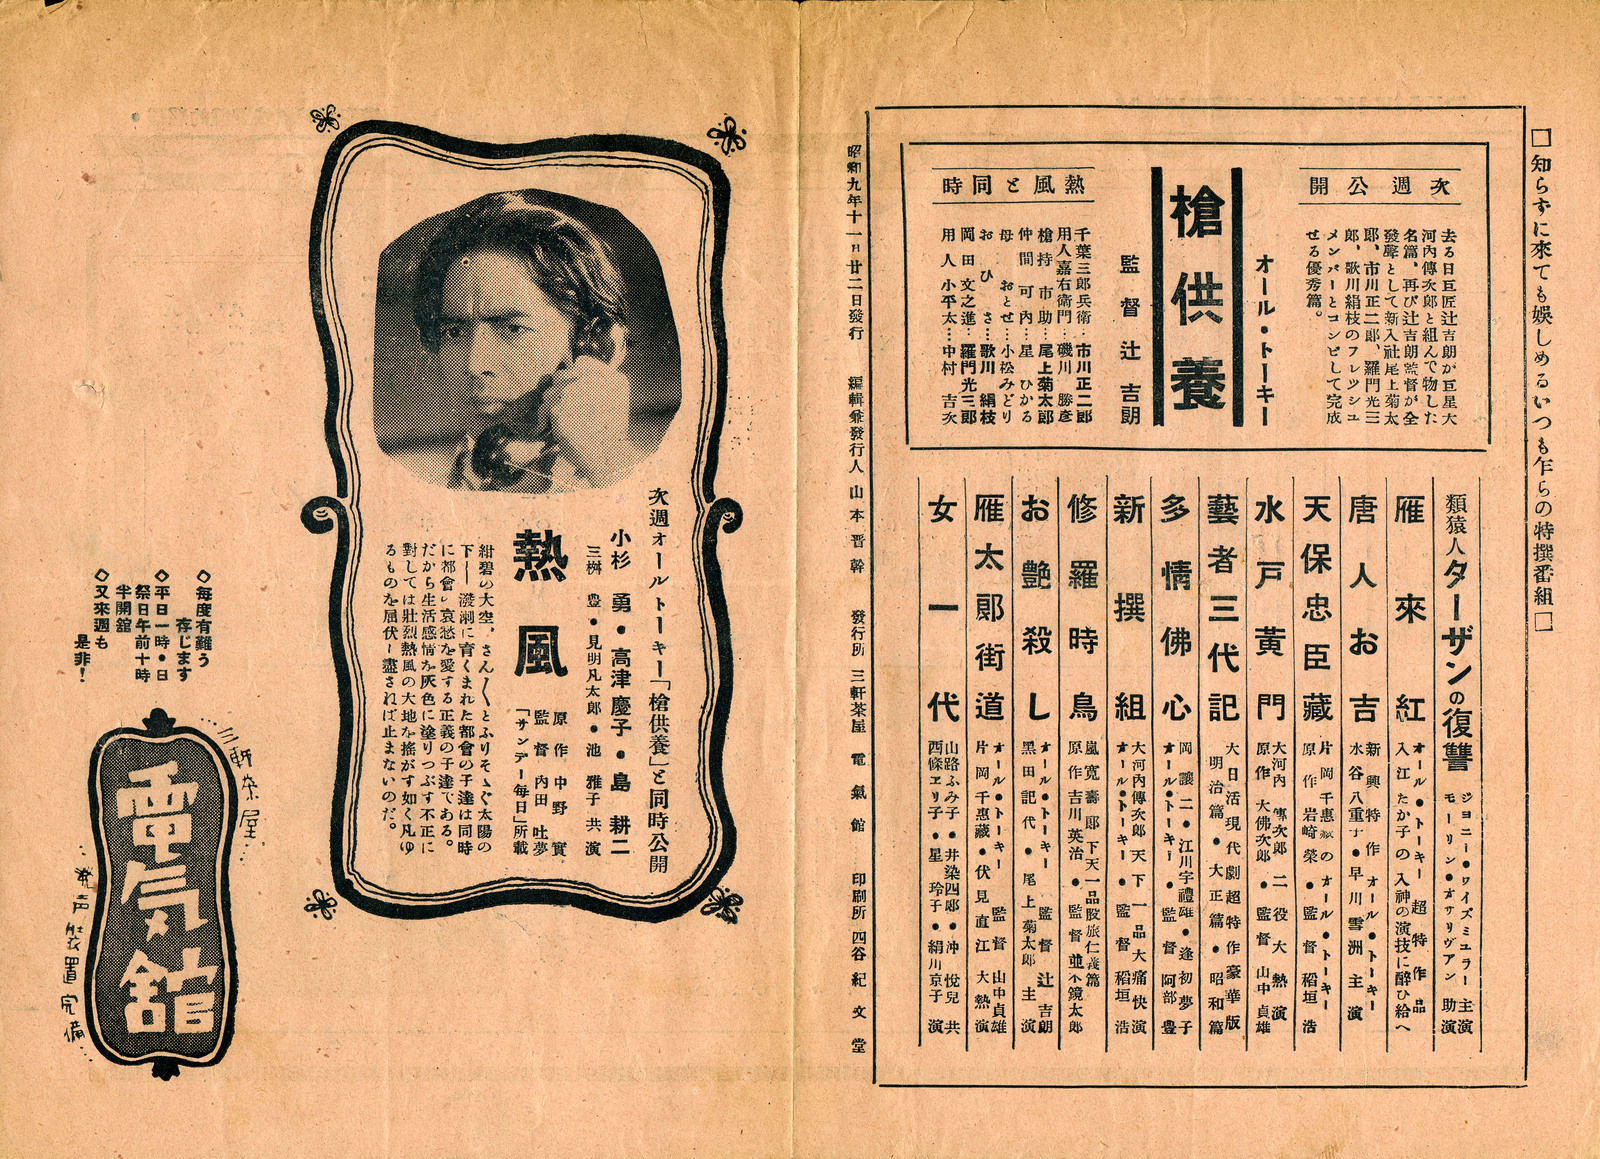 □知らずに來ても娯しめるいつも乍らの特撰番組□
次週公開
去る日巨匠辻吉朗が巨星大
河內傳次郎と組んで物した
名篇、再び辻吉朗監督が全
發聲として新入社尾上菊太
郎、市川正二郎、羅門光三
郎、歌川絹枝のフレツシユ
メンバーとコンビして完成
せる優秀篇。
オール・トーキー
槍供養
監督 辻吉朗
熱風と同時
千葉三郎兵衛…市川正二郎
用人嘉右衛門…磯川勝彦
槍持 市助…尾上菊太郎
仲間 可內…星ひかる
母 おとせ…小松みどり
おひさ…歌川絹枝
岡田文之進…羅門光三郎
用人 小平太…中村吉次
類猿人ターザンの復讐
ジヨニー・ワイズミユラー 主演
モーリン・オサリヴアン 助演
雁來紅
オール・トーキー 超特作品
入江たか子の入神の演技に醉ひ給へ
唐人お吉
新興特作 オール・トーキー
水谷八重子・早川雪洲 主演
天保忠臣藏
片岡千惠藏のオール・トーキー
原作 岩崎榮・監督 稲垣浩
水戸黃門
大河內傳次郎 二役大熱演
原作 大佛次郎・監督 山中貞雄
藝者三代記
大日活現代劇超特作豪華版
明治篇・大正篇・昭和篇
多情佛心
岡讓二・江川宇禮雄・逢初夢子
オール・トーキー・監督 阿部豊
新撰組
大河內傳次郎天下一品大痛快演
オール・トーキー・監督 稲垣浩
修羅時鳥
嵐寛壽郎下天一品股旅仁義篇
原作 吉川英治・監督 並木鏡太郎
お艶殺し
オール・トーキー 監督 辻吉朗
黑田記代・尾上菊太郎 主演
雁太郎街道
オール・トーキー 監督 山中貞雄
片岡千惠藏・伏見直江 大熱演
女一代
山路ふみ子・井染四郎・沖悅兒 共
西條エリ子・星玲子・絹川京子 演
昭和九年十一月廿二日發行 編輯兼發行人 山本晋幹 發行所 三軒茶屋 電氣館 印刷所 四谷 紀文堂
次週オールトーキー「槍供養」と同時公開
小杉勇・高津慶子・島耕二
三桝豊・見明凡太郎・池雅子 共演
熱風
原作 中野實
監督 內田吐夢
「サンデー每日」所載
紺碧の大空、さん〱とふりそゝぐ太陽の
下――潑溂に育くまれた都會の子達は同時
に都會い哀愁を愛する正義の子達である。
だから生活感情を灰色に塗りつぶす不正に
對しては壯烈熱風の大地を搖がす如く凡ゆ
るものを屈伏し盡されば止まないのだ。
◇每度有難う
存じます
◇平日一時・日
祭日午前十時
半開館
◇又來週も
是非!
三軒茶屋
電気館
発声装置完備